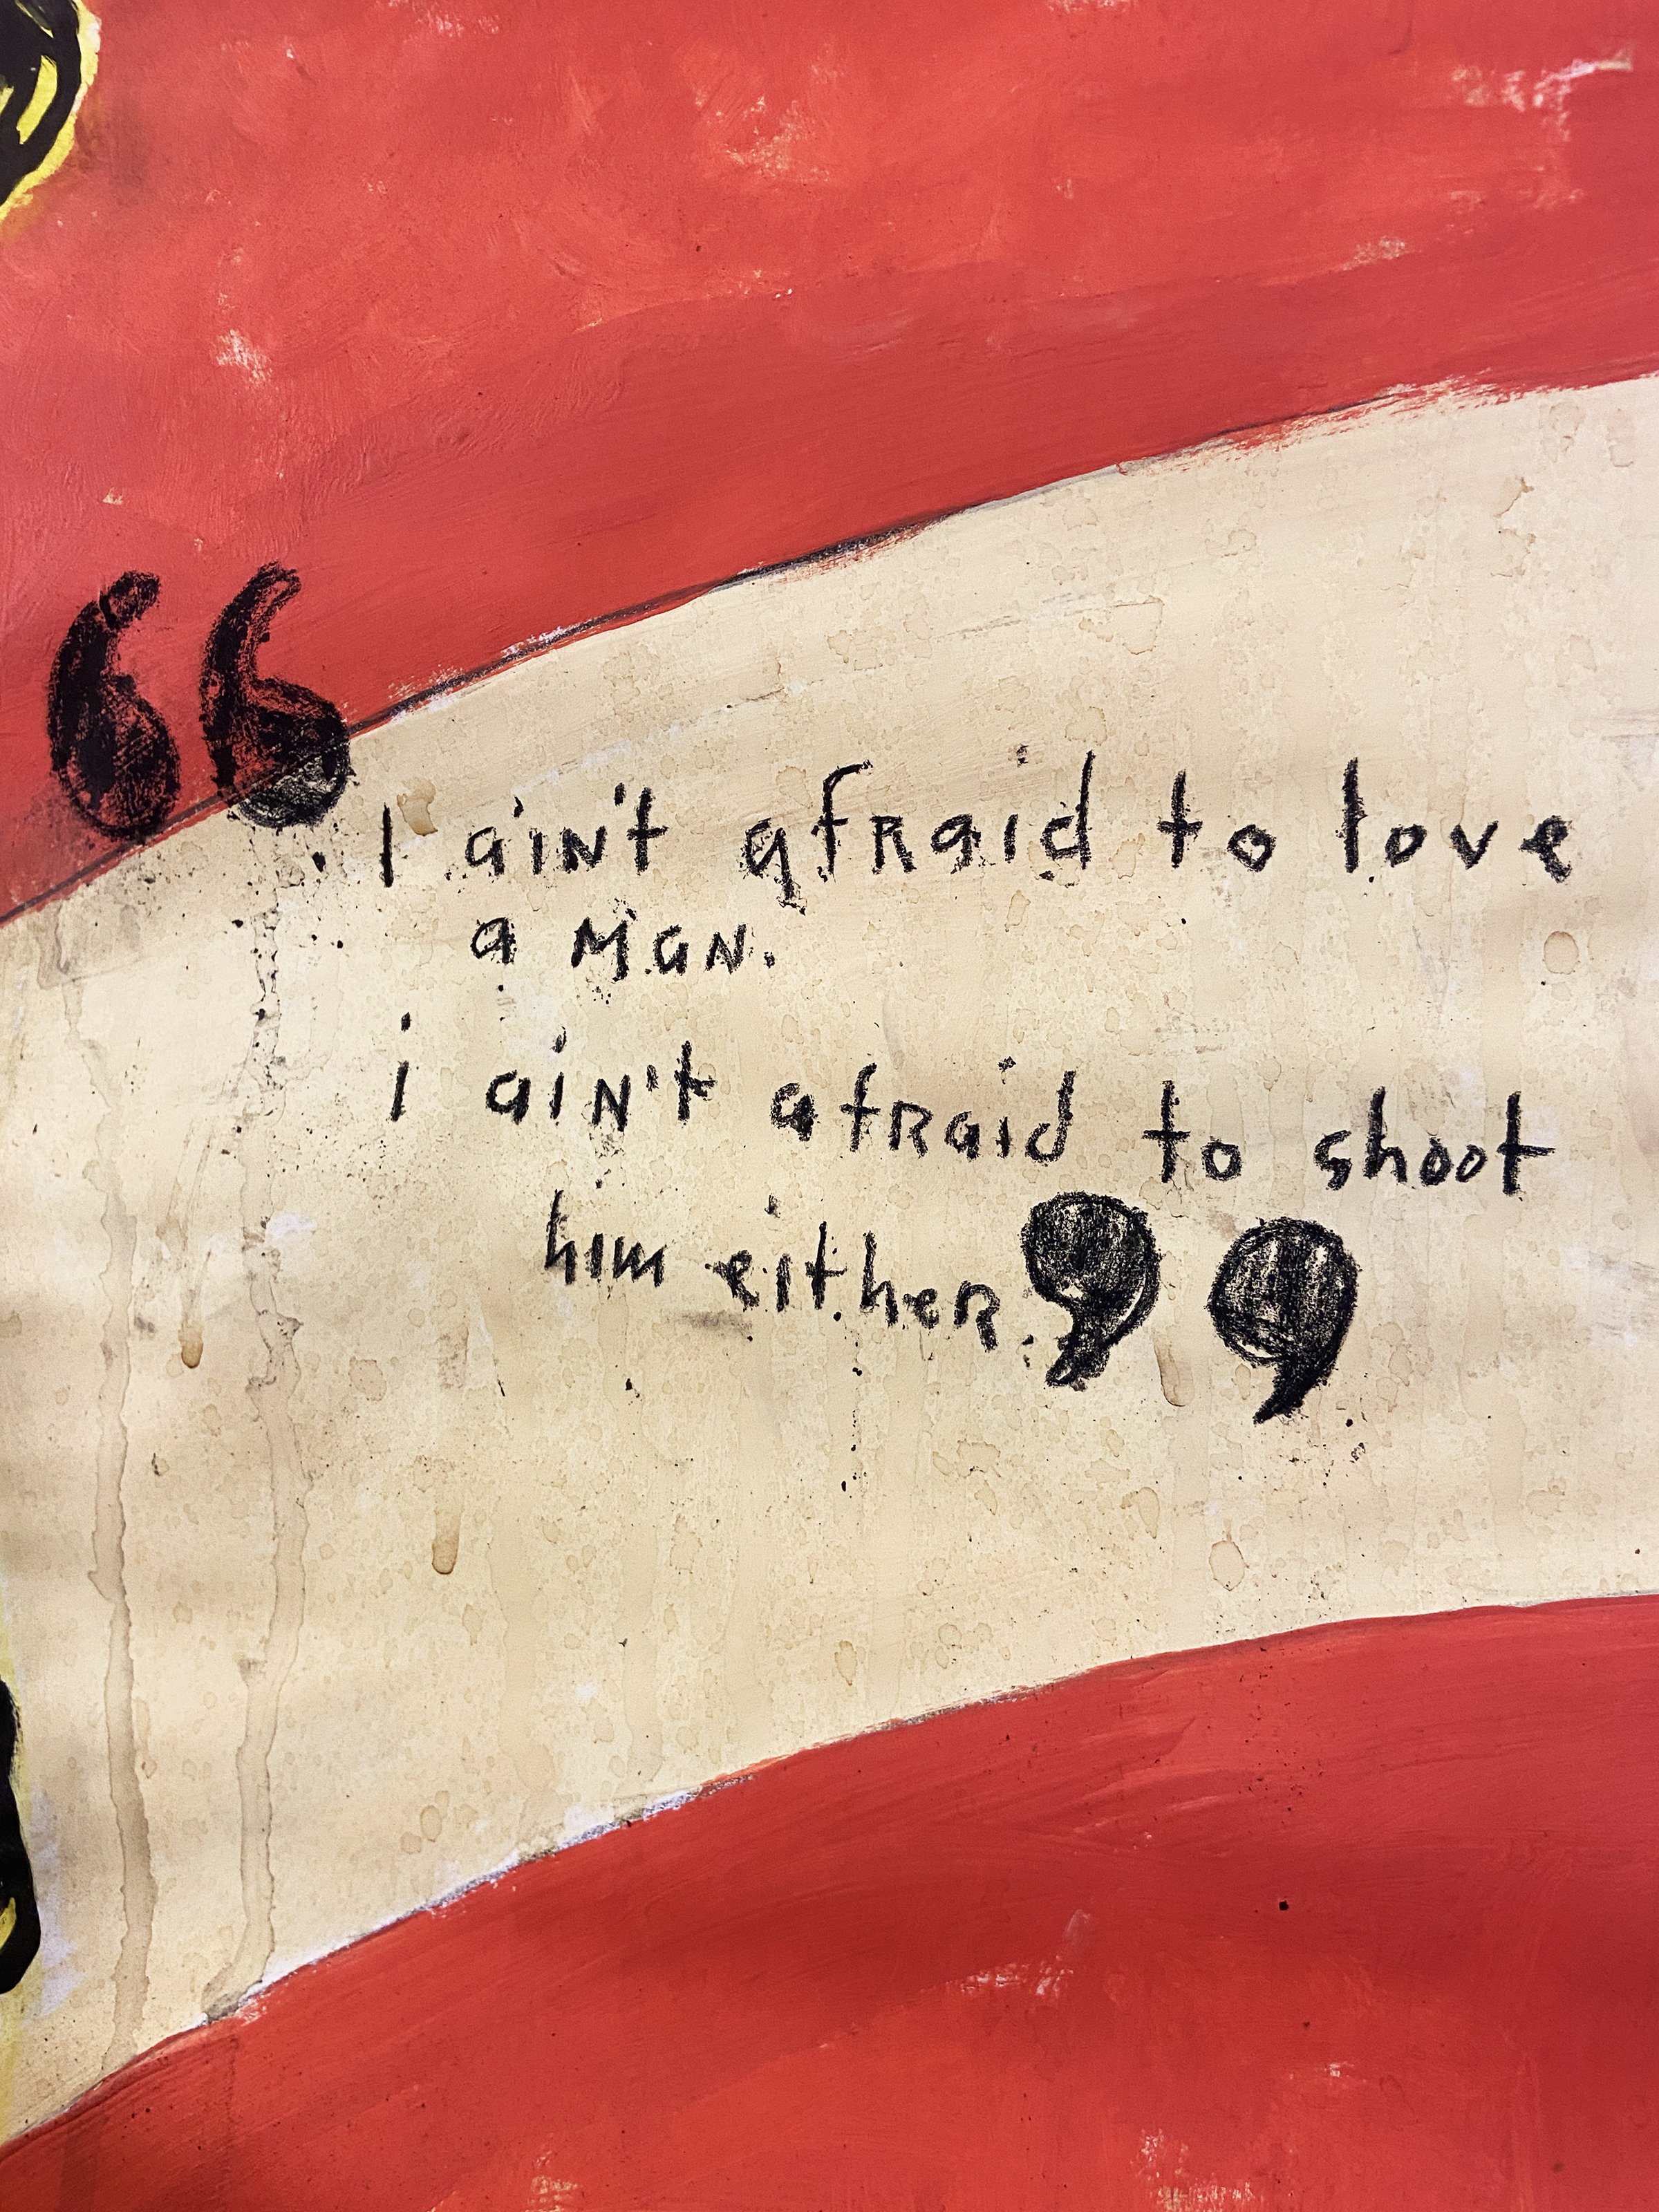 “I ain't afraid to love
a MaN.
i aiN't afRaid to shoot
him eitheR.”